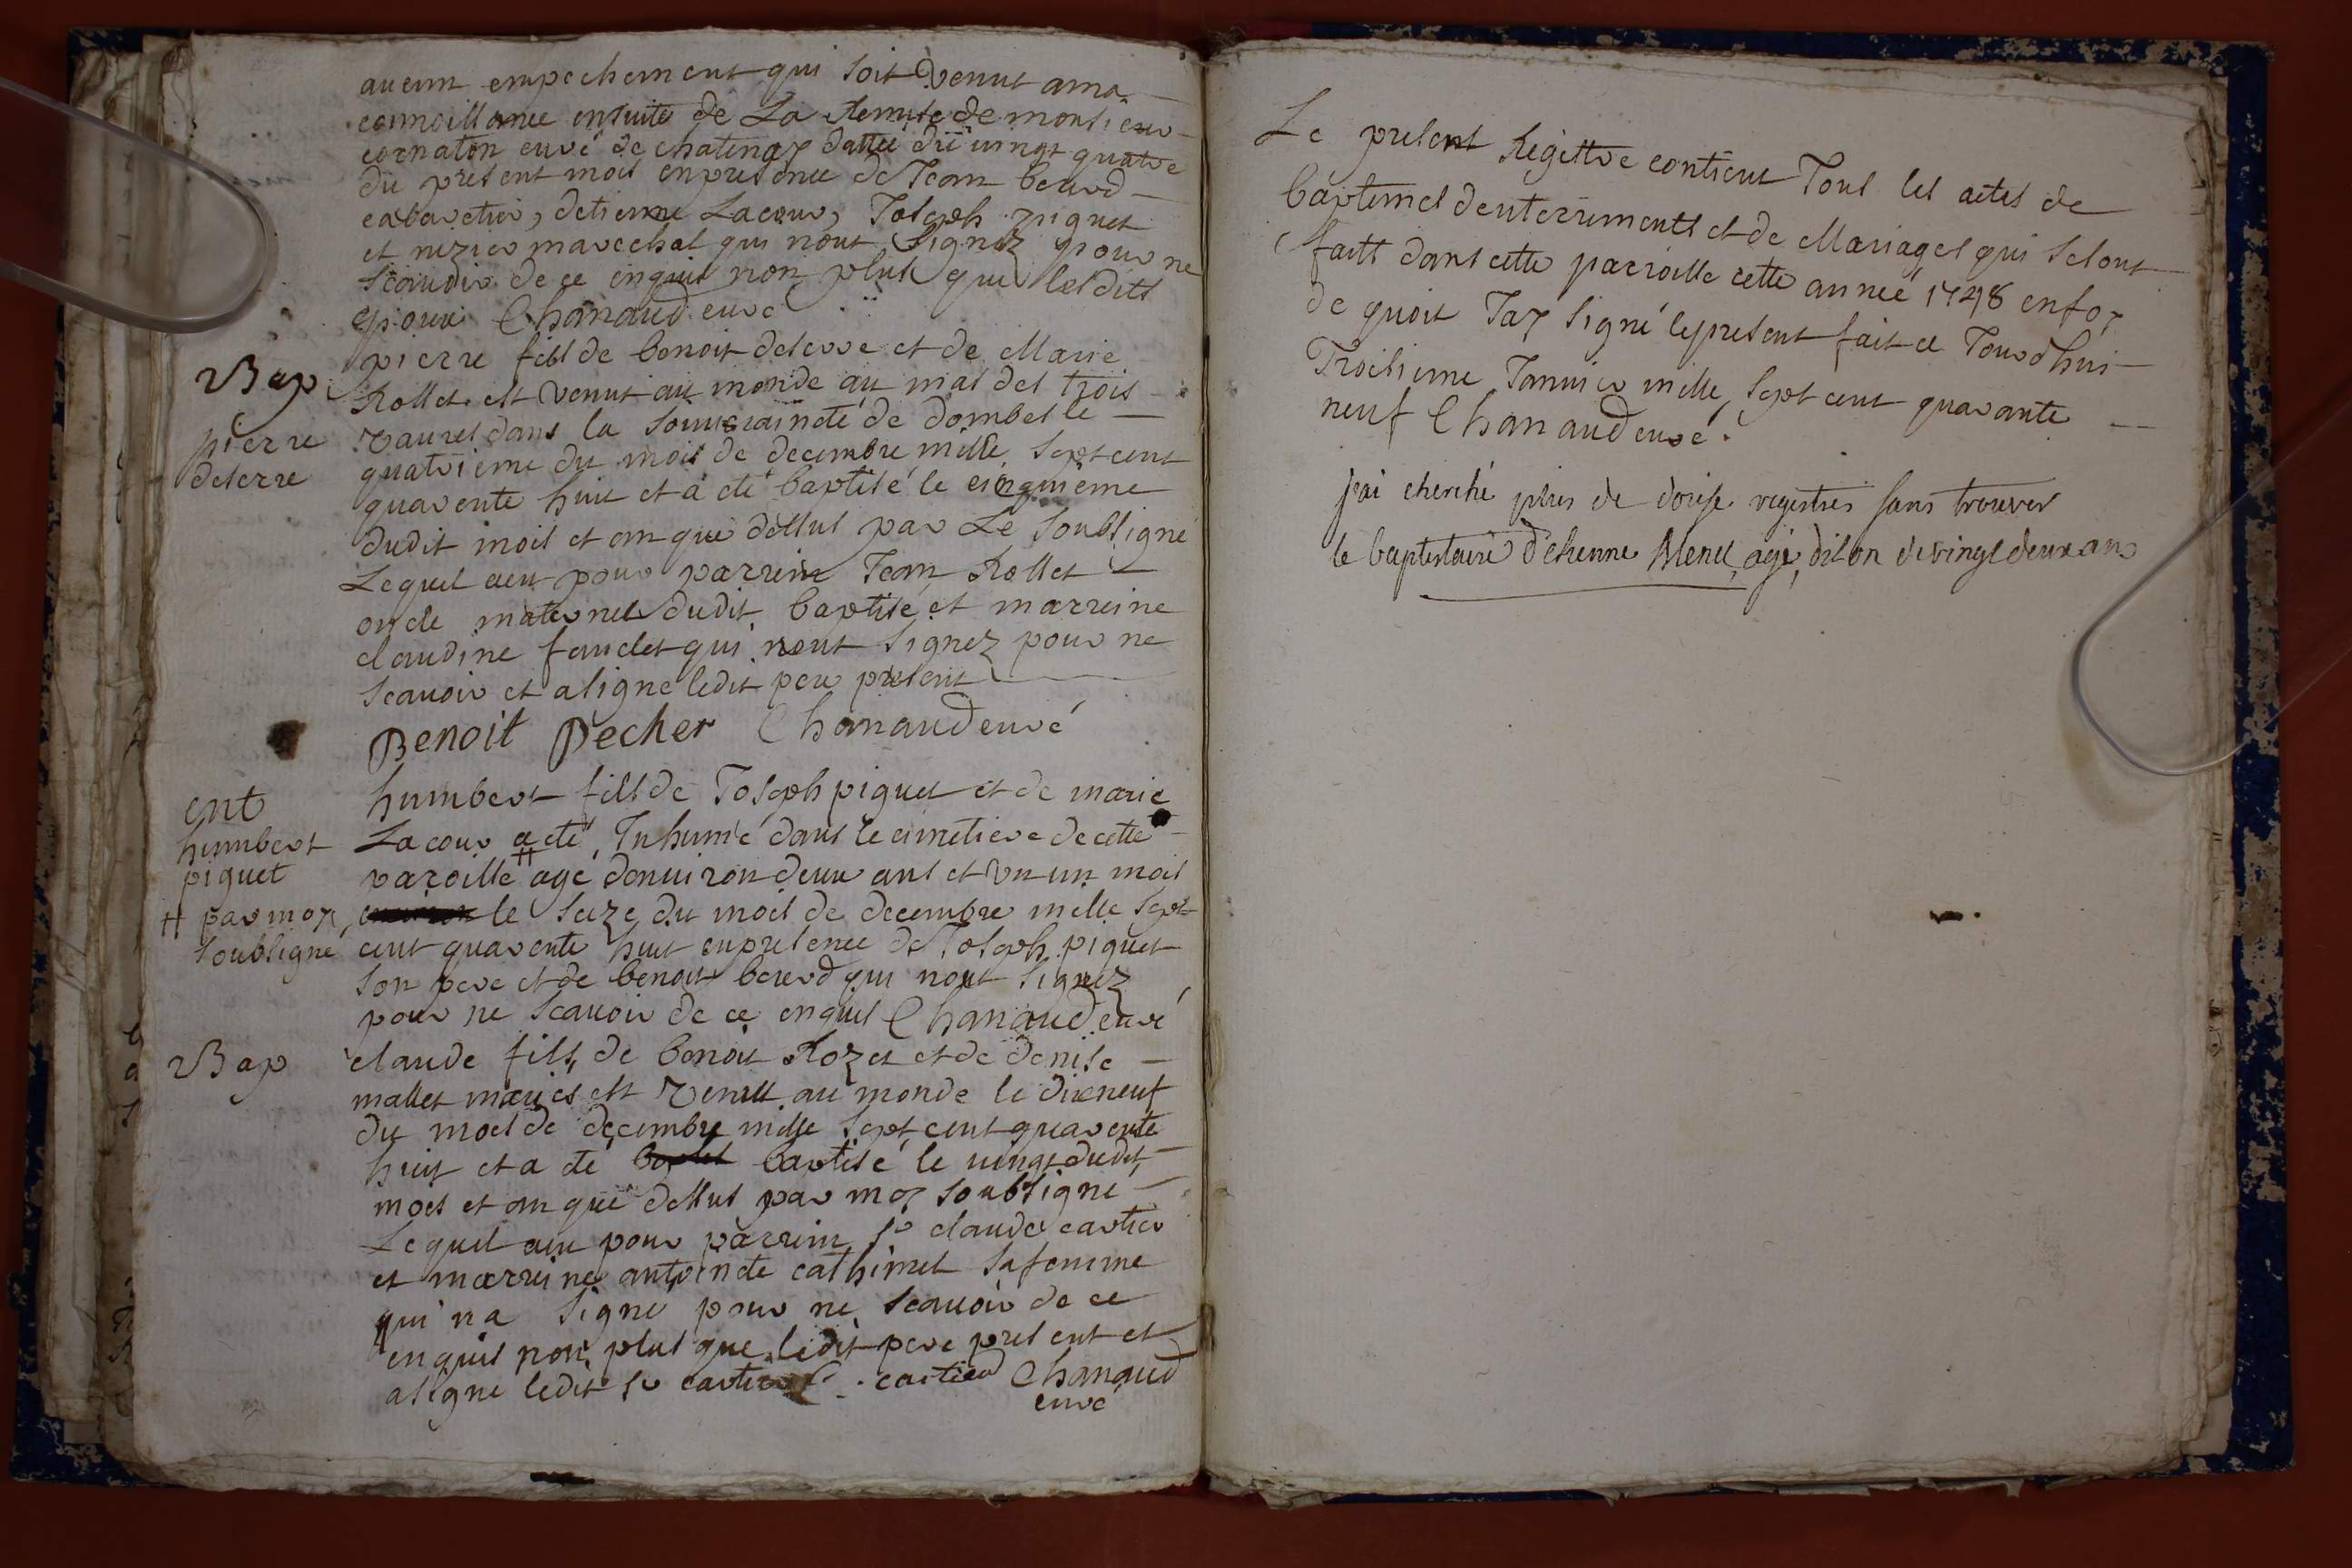 aucun empechement qui soit venut ama
connoissance ensuite de La Remise de monsieur
cornaton curé de chatenay dattée du vingt quatre
du present mois enpresence de Jean beurd
cabaretier, detienne Lacour, Joseph piquet
et nizier marechal qui nont signez pour ne
scavoir de ce enquis non plus que lesdits
epoux Chanaud curé
Bap
pierre
deserre
pierre fils de benoit deserre et de Marie
Rollet est venut au monde au mas des trois
vaures dans la souveraineté de dombes le
quatrieme du mois de decembre mille sept cent
quarente huit et a eté baptisé le cinquieme
dudit mois et an que dessus par Le soubsigné
Lequel aeu pour parrein Jean Rollet
oncle maternel dudit baptisé et marreine
claudine fauclet qui nont signez pour ne
scavoir et asigne ledit pere present
Benoit Decher Chanaud curé
ent
humbert
piquet
# par moy
soubsigné
humbert fils de Joseph piquet et de marie
Lacour a eté # Inhumé dans le cimetiere de cette
paroisse agé denviron deux ans et un mois
le seize du mois de decembre mille sept
cent quarente huit enpresence de Joseph piquet
son pere et de benoit beurd qui nont signez
pour ne scavoir de ce enquis Chanaud curé
Bap
claude fils de benoit Rozet et de denise
mallet mariés est venut au monde le dixneuf
du mois de decembre mille sept cent quarente
huit et a eté baptisé le vingt dudit
mois et an que dessus par moy soubsigné
Lequel aeu pour parrein sr claude cartier
et marreine antoinete cathinet sa femme
qui na signé pour ne scavoir de ce
enquis non plus que ledit pere present et
asigné ledit sr cartier cartier Chanaud
curé
Le present Regittre contient Tous les actes de
baptemes denterrements et de Mariages qui se sont
faits dans cette parroisse cette anneé 1748 enfoy
de quoit Jay signé lepresent fait ce Jourdhui
Troisieme Janvier mille sept cent quarante
neuf Chanaud curé.
j'ai cherché plus de douse registres sans trouver
le baptistaire d'etienne Menu, agé, dit on de vingt deux ans